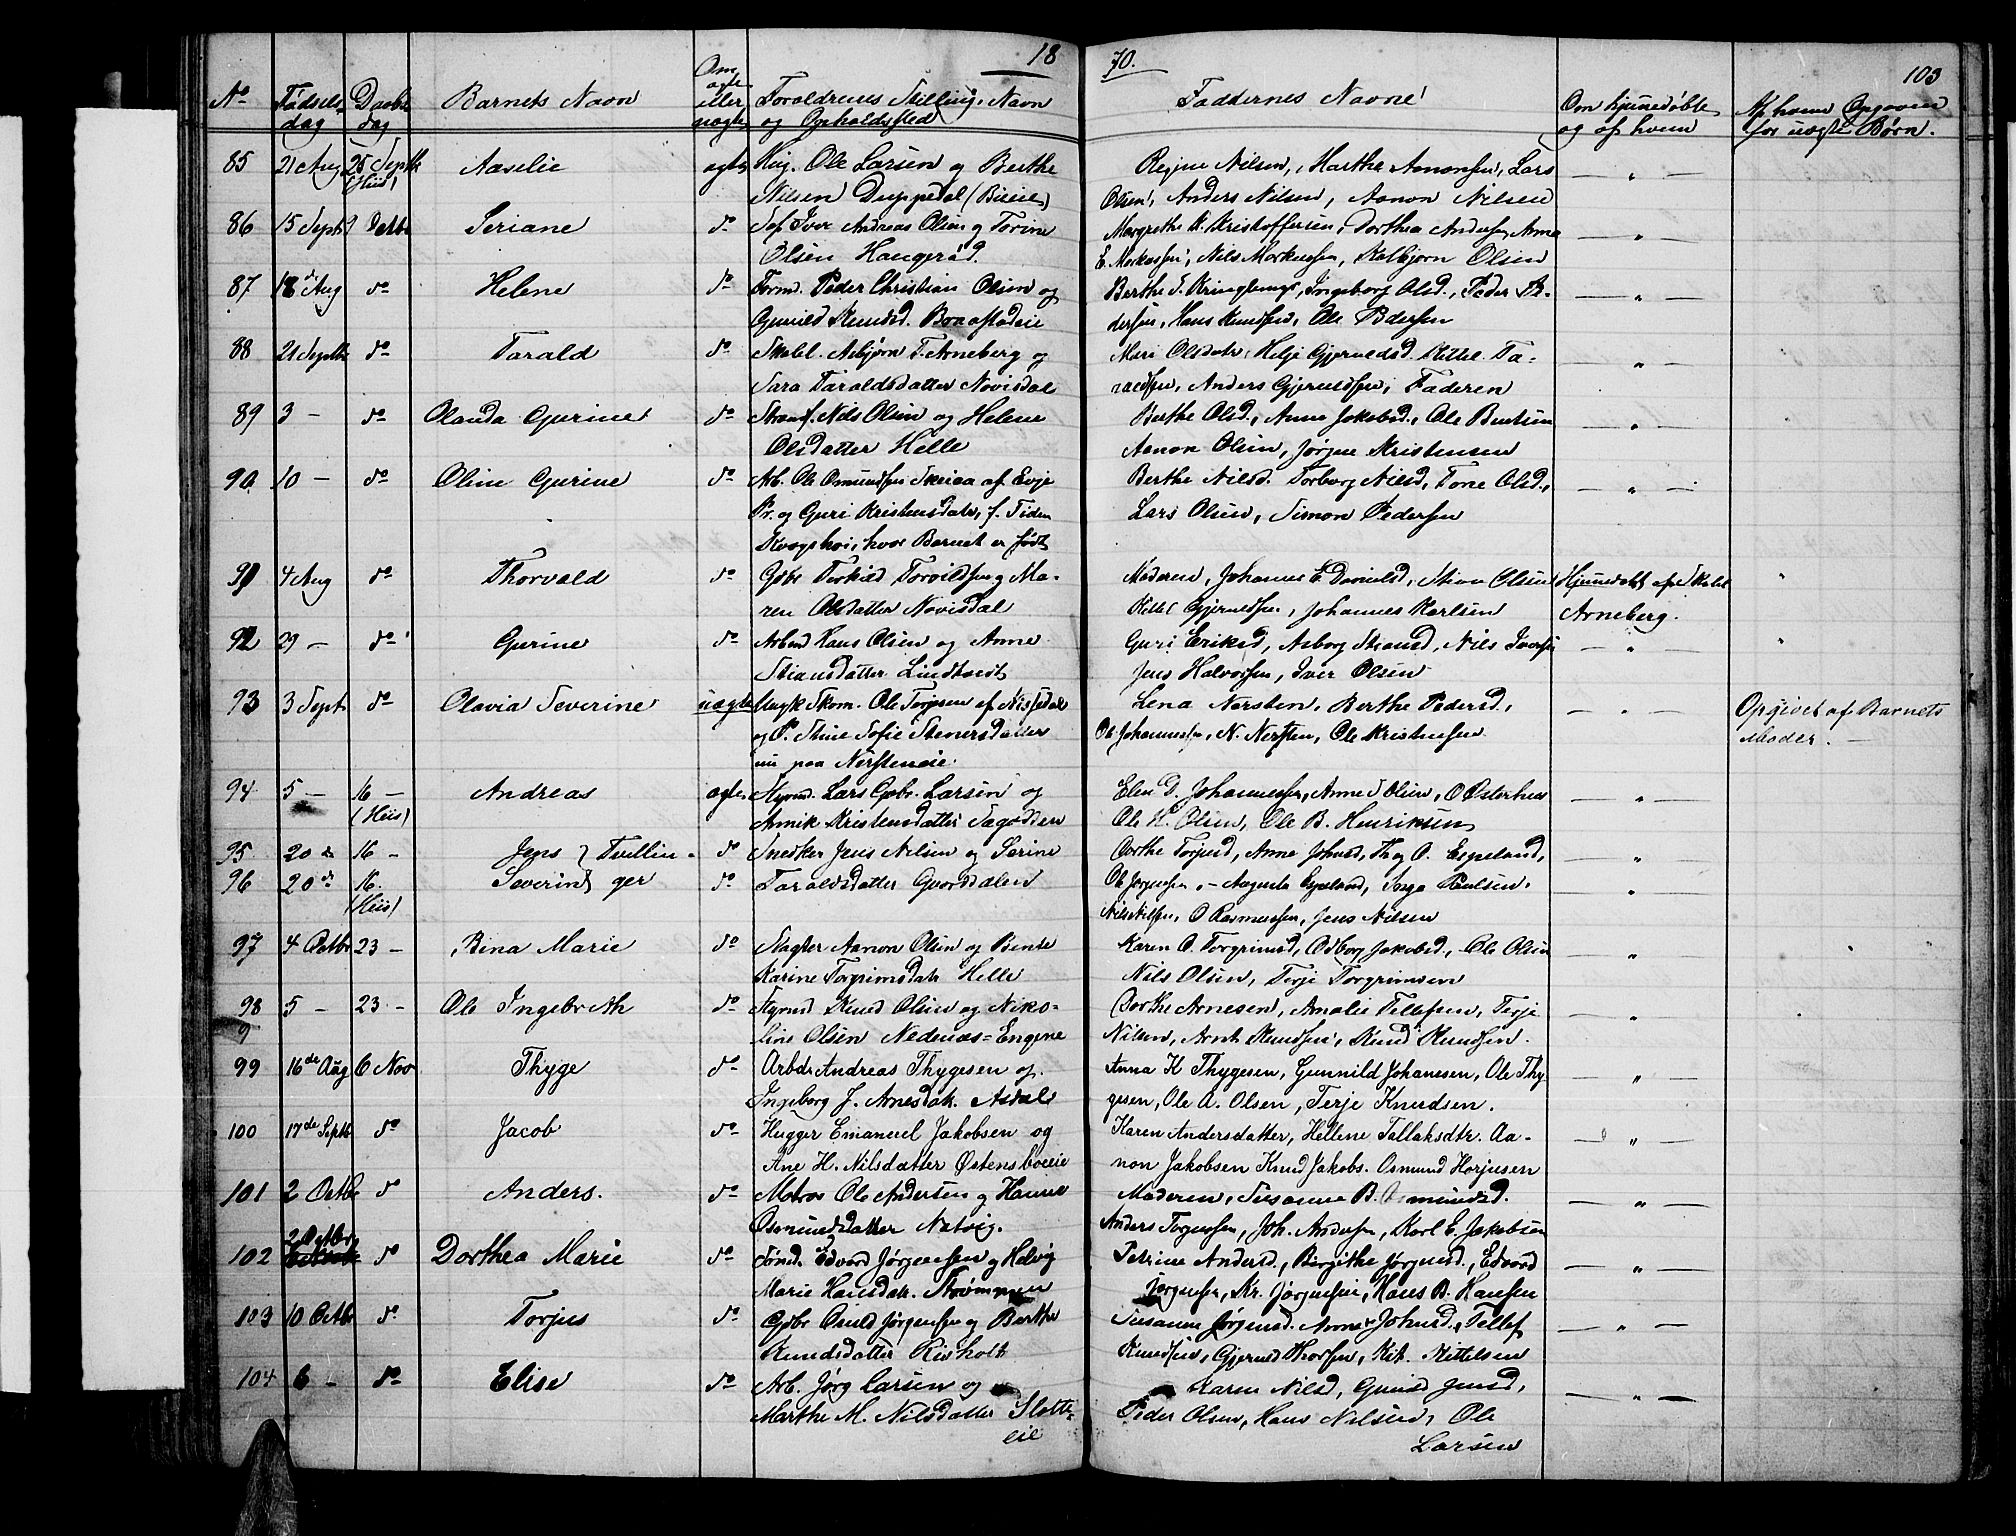 18 70. 103
No Fødsels- dag Daabs dag Barnets Navn Om ægte eller uægte Forældrenes Stilling, Navn og Opholdssted Faddernes Navne Om hjemmedøbte og af hvem Af hvem Opgaven for uægte Børn.
85 21 Aug 25 Septb (Hiis) Aaselie ægte Hug. Ole Larsen og Berthe Regine Nilsen, Marthe Amonsen, Lars — " —
Nilsen Duppedal (Biiie) Olsen, Anders Nilsen, Aanon Nilsen
86 15 Septb 9 Octbr Seriane do Søf. Iver Andreas Olsen og Torine Margrethe K. Kristoffersen, Dorthea Anders, Anne — " —
Olsen Haugerød. E. Markussen, Nils Markussen, Kolbjørn Olsen
87 18 Aug do Helene do Tømd. Peder Christian Olsen og Berthe S. Kringlemyr, Ingeborg Olsd., Peder Pe- — " —
Gunild Knudsd. Braastadeie dersen, Hans Knudsen, Ole Pedersen
88 21 Septbr do Tarald do Skolel. Asbjørn T. Arneberg og Mari Olsdatr, Helje Gjeruldsd. Kittel Ta- — " —
Sara Taraldsdatter Novisdal raldsen, Anders Gjeruldsen, Faderen
89 3 — do Olanda Gurine do Strandf. Nils Olsen og Helene Berthe Olsd., Anne Jakobsd., Ole Bentsen — " —
Olsdatter Helle Aanon Olsen, Jørgen Kristensen
90 10 — do Oline Gurine do Arb. Ole Osmundsen Skripa af Evje Berthe Nilsd. Torborg Nilsd, Tone Olsd., — " —
Pr. og Guri Kristensdatr, f. Tiden Lars Olsen, Simon Pedersen
Kvagshei, hvor Barnet er født
91 4 Aug do Thorvald do Gdbr Terkild Torvildsen og Ma- Moderen, Johanne E. Danielsd, Stian Olsen Hjemmedøbt af Skolel. "
ren Olsdatter Novisdal Kittel Gjeruldsen, Johannes Karlsen Arneberg.
92 29 — do Gurine do Arbmd Hans Olsen og Anne Guri Eriksd, Asborg Stiansd, Nils Iversen — " — "
Stiansdatter Lindtveit Jens Halvorsen, Iver Olsen
93 3 Sept. do Olavia Severine uægte Ungk Skom. Ole Torjesen af Nissedal Lena Nersten, Berthe Pedersd, — " — Opgivet af Barnets
og P. Stine Sofie Stenersdatter Ole Johannesen, N. Nersten, Ole Kristensen Moder. —
nu paa Nersteneie.
94 5 — 16 — (Hiis) Andreas ægte Styrmd. Lars Gabr. Larsen og Elen D. Johannesen, Anne S Olsen, O Østerhuus — " —
Annik Kristensdatter Sagodden Ole H. Olsen, Ole B. Henriksen
95 20 d 16 — Jens } Tvillin- do Snedker Jens Nilsen og Serine Dorthe Torjusd, Anne Johnsd, Th og O. Espeland, — " —
96 20 de 16. (Hiis) Severin } ger do Taraldsdatter Gaardsdalen Ole Jørgensen, Augusta Espeland, Inga Paulsen, — " —
Nils Nilsen, O Rasmussen, Jens Nilsen
97 4 Octbr 23 — Bina Marie do Slagter Aanon Olsen og Bente Karen O. Torgrimsd, Odborg Jakobsd, Ole Olsen — " —
Karine Torgrimsdatr Helle Nils Olsen, Terje Torgrimsen
98 5 — 23 — Ole Ingebreth do Styrmd Knud Olsen og Niko- Dorthe Arnesen, Amalie Tellefsen, Terje — " —
9 line Olsen Nedenæs=Engene Nilsen, Arnt Knudsen, Knud Knudsen.
99 16de Aug 6 Nov Thyge do Arbdr Andreas Thygesen og Anna K Thygesen, Gunnild Johanesen, Ole Thy- — " —
Ingeborg J. Arnesdatr. Asdale gesen, Ole A. Olsen, Terje Knudsen.
100 17de Septb do Jacob do Hugger Emanuel Jakobsen og Karen Andersdatter, Hellene Tallaksdtr. Aa- — " —
Ane H. Nilsdatter Østensboeie non Jakobsen Knud Jakobs. Osmund Horjusen
101 2 Octbr do Anders. do Matros Ole Andersen og Hanne Moderen, Susanne B. Osmundsd. — " —
Osmundsdatter Natvig. Anders Torgersen, Joh. Andersen, Karl E. Jakobsen
102 2 Octbr do Dorthea Marie do Tømd. Edvard Jørgensen og Helvig Petrine Andersd., Birgithe Jørgensd., Edvard — " —
Marie Hansdatr. Strømmen Jørgensen, Kr. Jørgensen, Hans B. Hansen
103 10 Octbr do Torjus do Gdbr Osuld Jørgensen og Berthe Susanne Jørgensd. Anne Johnsd, Tellef — " —
Knudsdatter Risholt Knudsen, Gjerud Thorsen, Kit. Kittelsen
104 6 — do Elise do Arb. Jørg Larsen og Karen Nilsd, Gunild Jensd, — " —
Marthe M. Nilsdatter Slotte- Peder Olsen, Hans Nilsen, Ole
eie Larsen